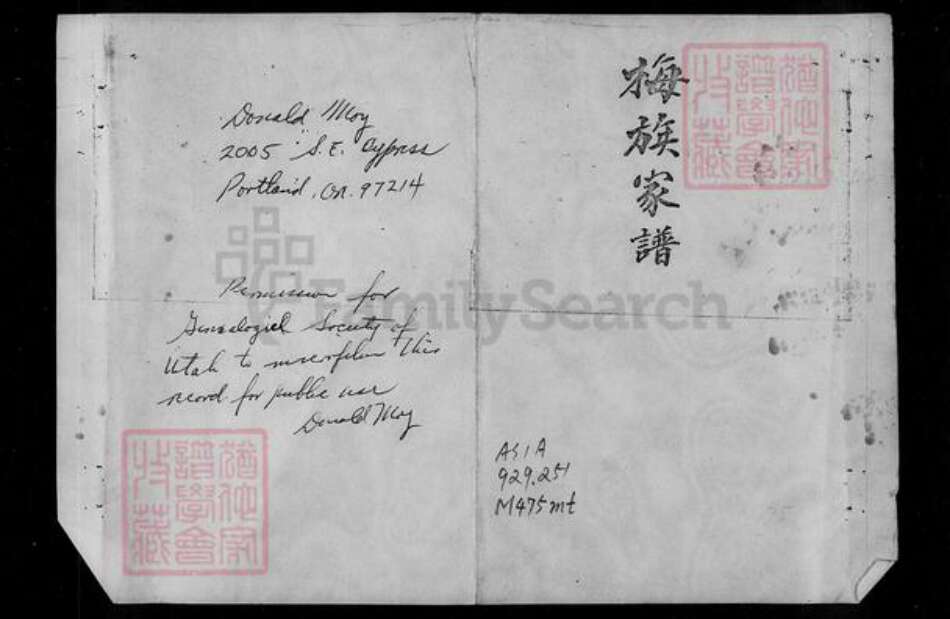 Donald Moy
2005 S.E. Cypress
Portland, OR. 97214
Permission for
Genealogicl Society of
Utah to microfilm this
record for public use
Donald Moy
梅族家譜
ASIA
929.251
M475mt
猶他家
譜學會
收藏
猶他家
譜學會
收藏
FamilySearch